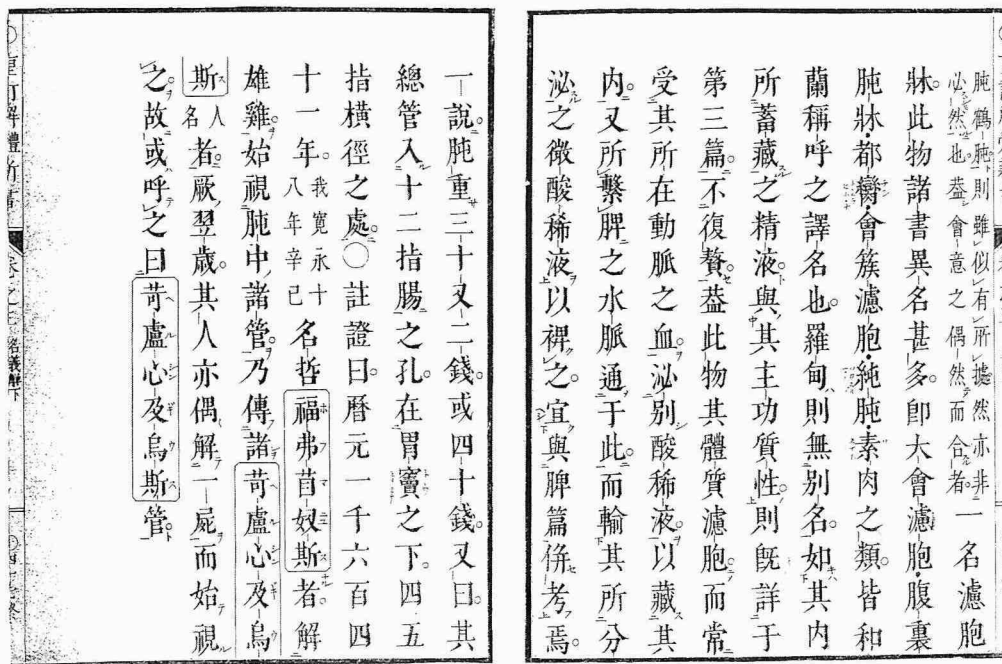 肫鶴肫則雖似有所據然亦非
必然也葢會意之偶然而合者 一名濾胞
牀此物諸書異名甚多卽大會濾胞腹裏
肫牀都臠會簇濾胞純肫素肉之類皆和
蘭稱呼之譯名也羅甸則無別名如其内
所蓄藏之精液與其主功質性則旣詳于
第三篇不復贅葢此物其體質濾胞而常
受其所在動脈之血泌別酸稀液以藏其
内又所繫脾之水脈通于此而輸其所分
泌之微酸稀液以裨之宜與脾篇併考焉
一說肫重三十又二錢或四十錢又曰其
總管入十二指腸之孔在胃竇之下四五
指橫徑之處○註證曰曆元一千六百四
十一年我寛永十八年辛巳名哲福弗苜奴斯者解
雄雞始視肫中諸管乃傳諸苛盧心及烏
斯人名者厥翌歲其人亦偶解一屍而始視
之故或呼之曰苛盧心及烏斯管